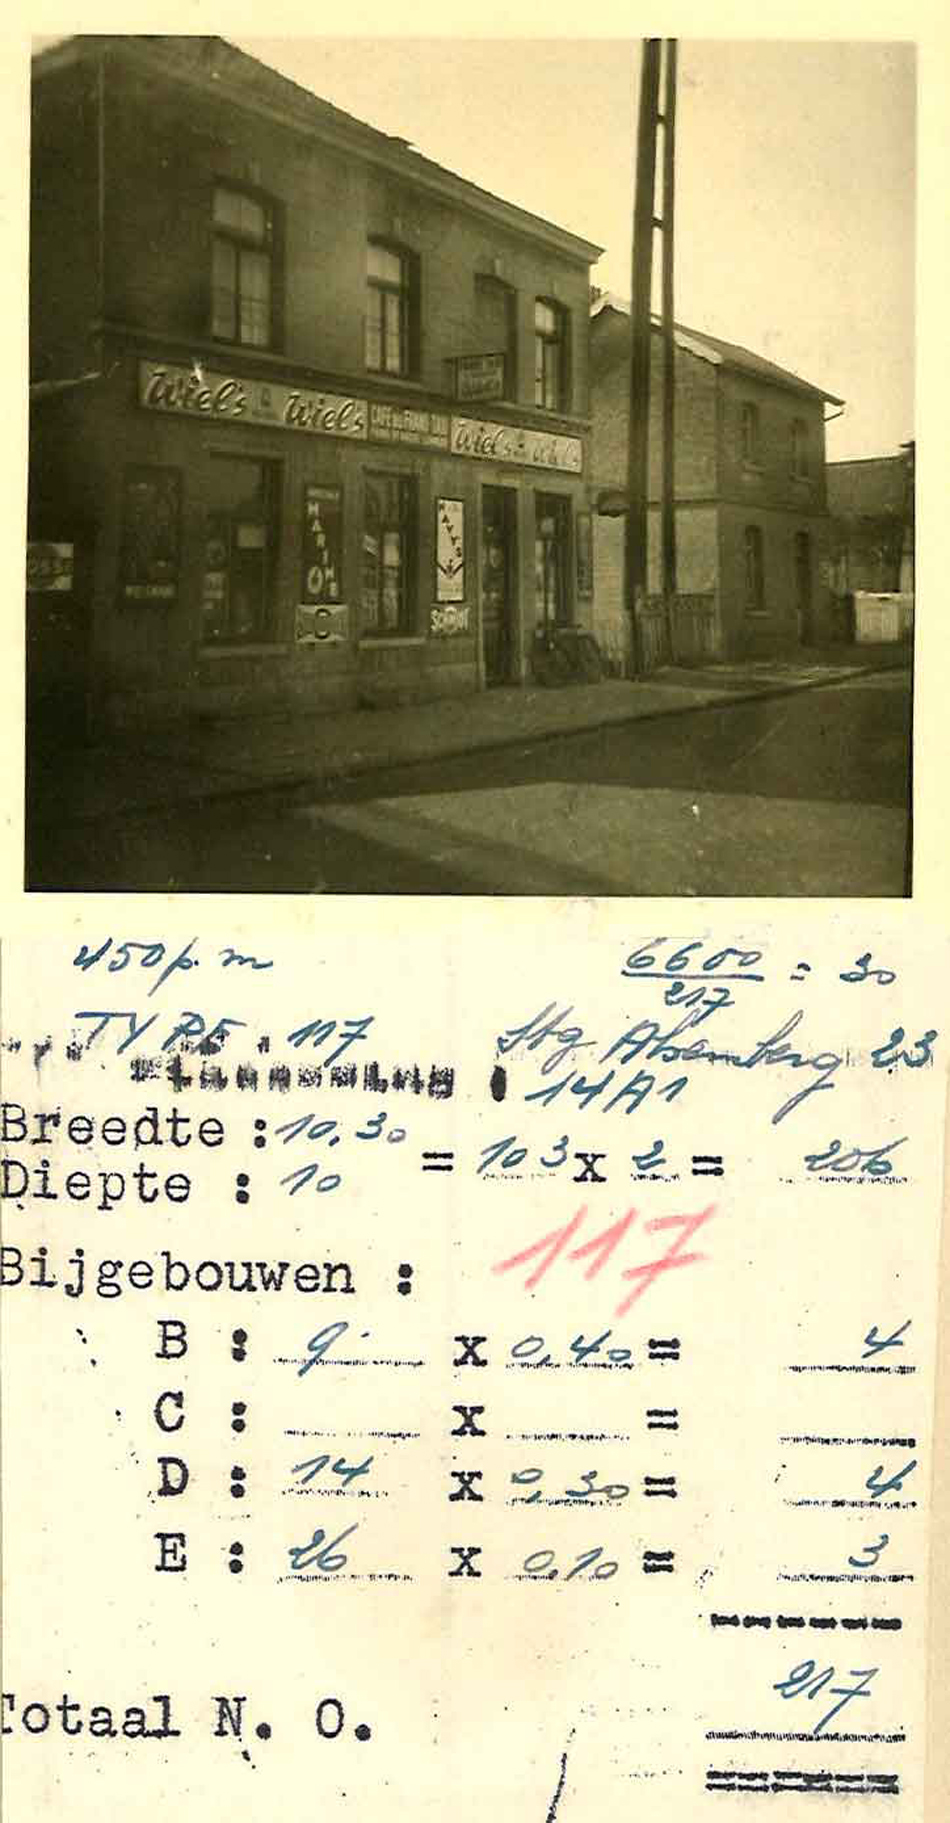 Wiel's Wiel's CAFE du GRAND BAU Wiel's Wiel's
MARTINI
SCHMIDT
450 p. m
6600 / 217 = 30
TYPE . 117
Stg Alsemberg 23
14A1
Breedte : 10,30
= 103 x 2 = 206
Diepte : 10
117
Bijgebouwen :
B : 9 x 0,40 = 4
C : x =
D : 14 x 0,30 = 4
E : 26 x 0,10 = 3
217
Totaal N. O.